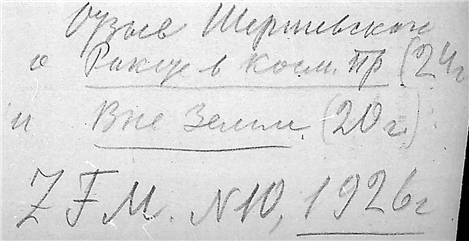 Отзыв Шершевского
о Ракете в косм. пр (24г
и Вне Земли. (20 г.)
Z F M. N10, 1926г